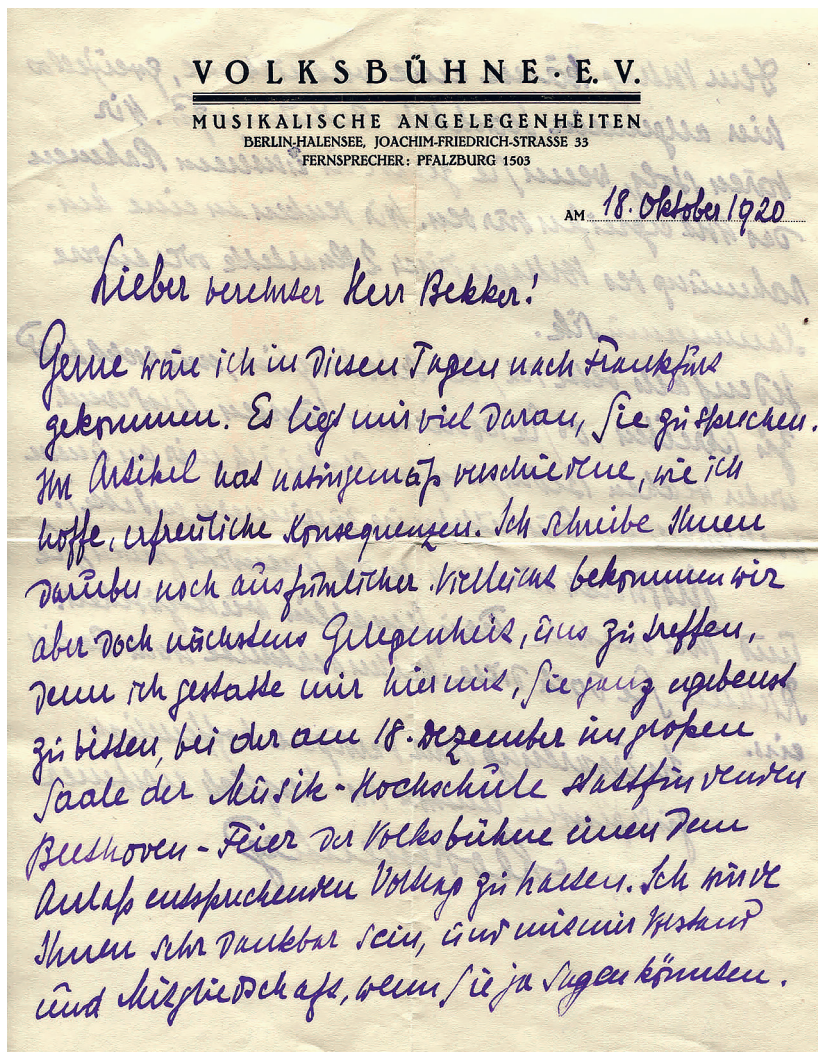 VOLKSBÜHNE · E. V.
MUSIKALISCHE ANGELEGENHEITEN
BERLIN-HALENSEE, JOACHIM-FRIEDRICH-STRASSE 33
FERNSPRECHER: PFALZBURG 1503
AM 18. Oktober 1920
Lieber verehrter Herr Bekker!
Gerne wäre ich in diesen Tagen nach Frankfurt
gekommen. Es liegt mir viel daran, Sie zu sprechen.
Ihr Artikel hat naturgemäß verschiedene, wie ich
hoffe, erfreuliche Konsequenzen. Ich schreibe Ihnen
darüber noch ausführlicher. Vielleicht bekommen wir
aber doch nächstens Gelegenheit, uns zu treffen,
denn ich gestatte mir hiermit, Sie ganz ergebenst
zu bitten, bei der am 18. Dezember im großen
Saale der Musik-Hochschule stattfindenden
Beethoven-Feier der Volksbühne einen dem
Anlaß entsprechenden Vortrag zu halten. Ich würde
Ihnen sehr dankbar sein, und mit mir Vorstand
und Mitgliedschaft, wenn Sie ja sagen könnten.